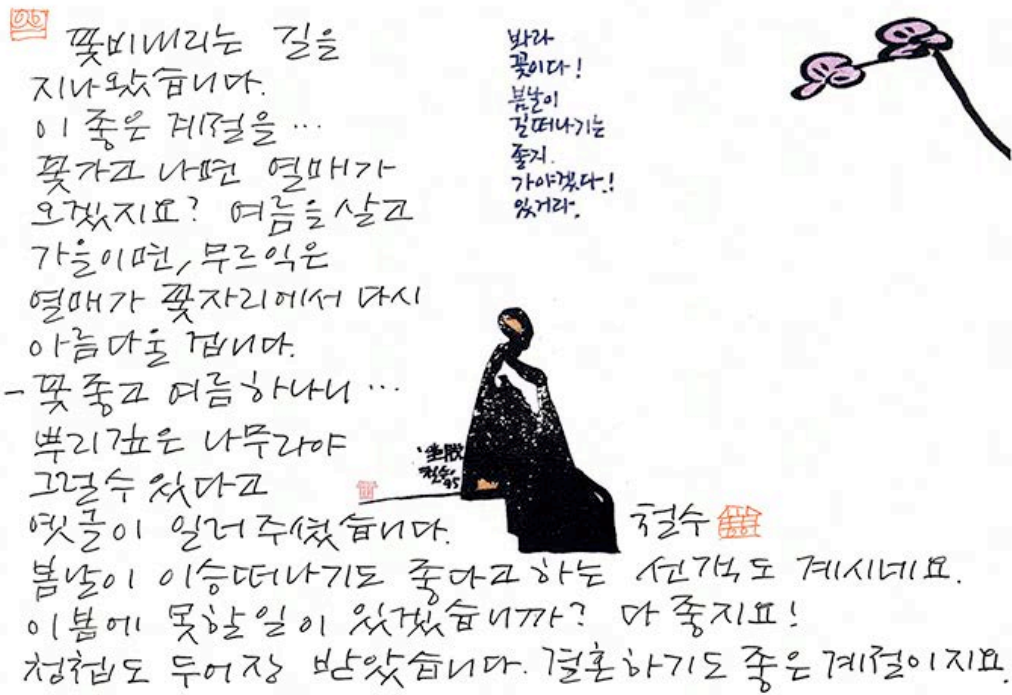 꽃비내리는 길을
지나왔습니다.
이 좋은 계절을…
꽃가고 나면 열매가
오겠지요? 여름을 살고
가을이면, 무르익은
열매가 꽃자리에서 다시
아름다울 겁니다.
- 꽃 좋고 여름하나니…
뿌리깊은 나무라야
그럴수 있다고
옛글이 일러 주셨습니다.
봄날이 이승떠나기도 좋다고 하는 선객도 계시네요.
이봄에 못할일이 있겠습니까? 다 좋지요!
청첩도 두어장 받았습니다. 결혼하기도 좋은 계절이지요.
봐라
꽃이다!
봄날이
길떠나기는
좋지.
가야겠다.!
있거라.
'坐脫'
철수 95
철수